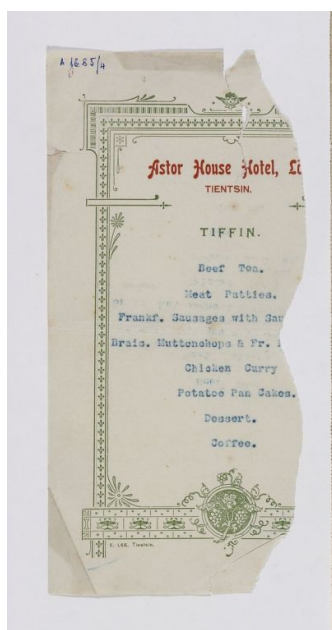 Astor House Hotel,
TIENTSIN.
TIFFIN.
Beef Tea.
Meat Patties.
Frankf. Sausages with Sau
Brais. Muttonchops & Fr.
Chicken Curry
Potatoe Pan Cakes.
Dessert.
Coffee.
E. LEE, Tientsin.